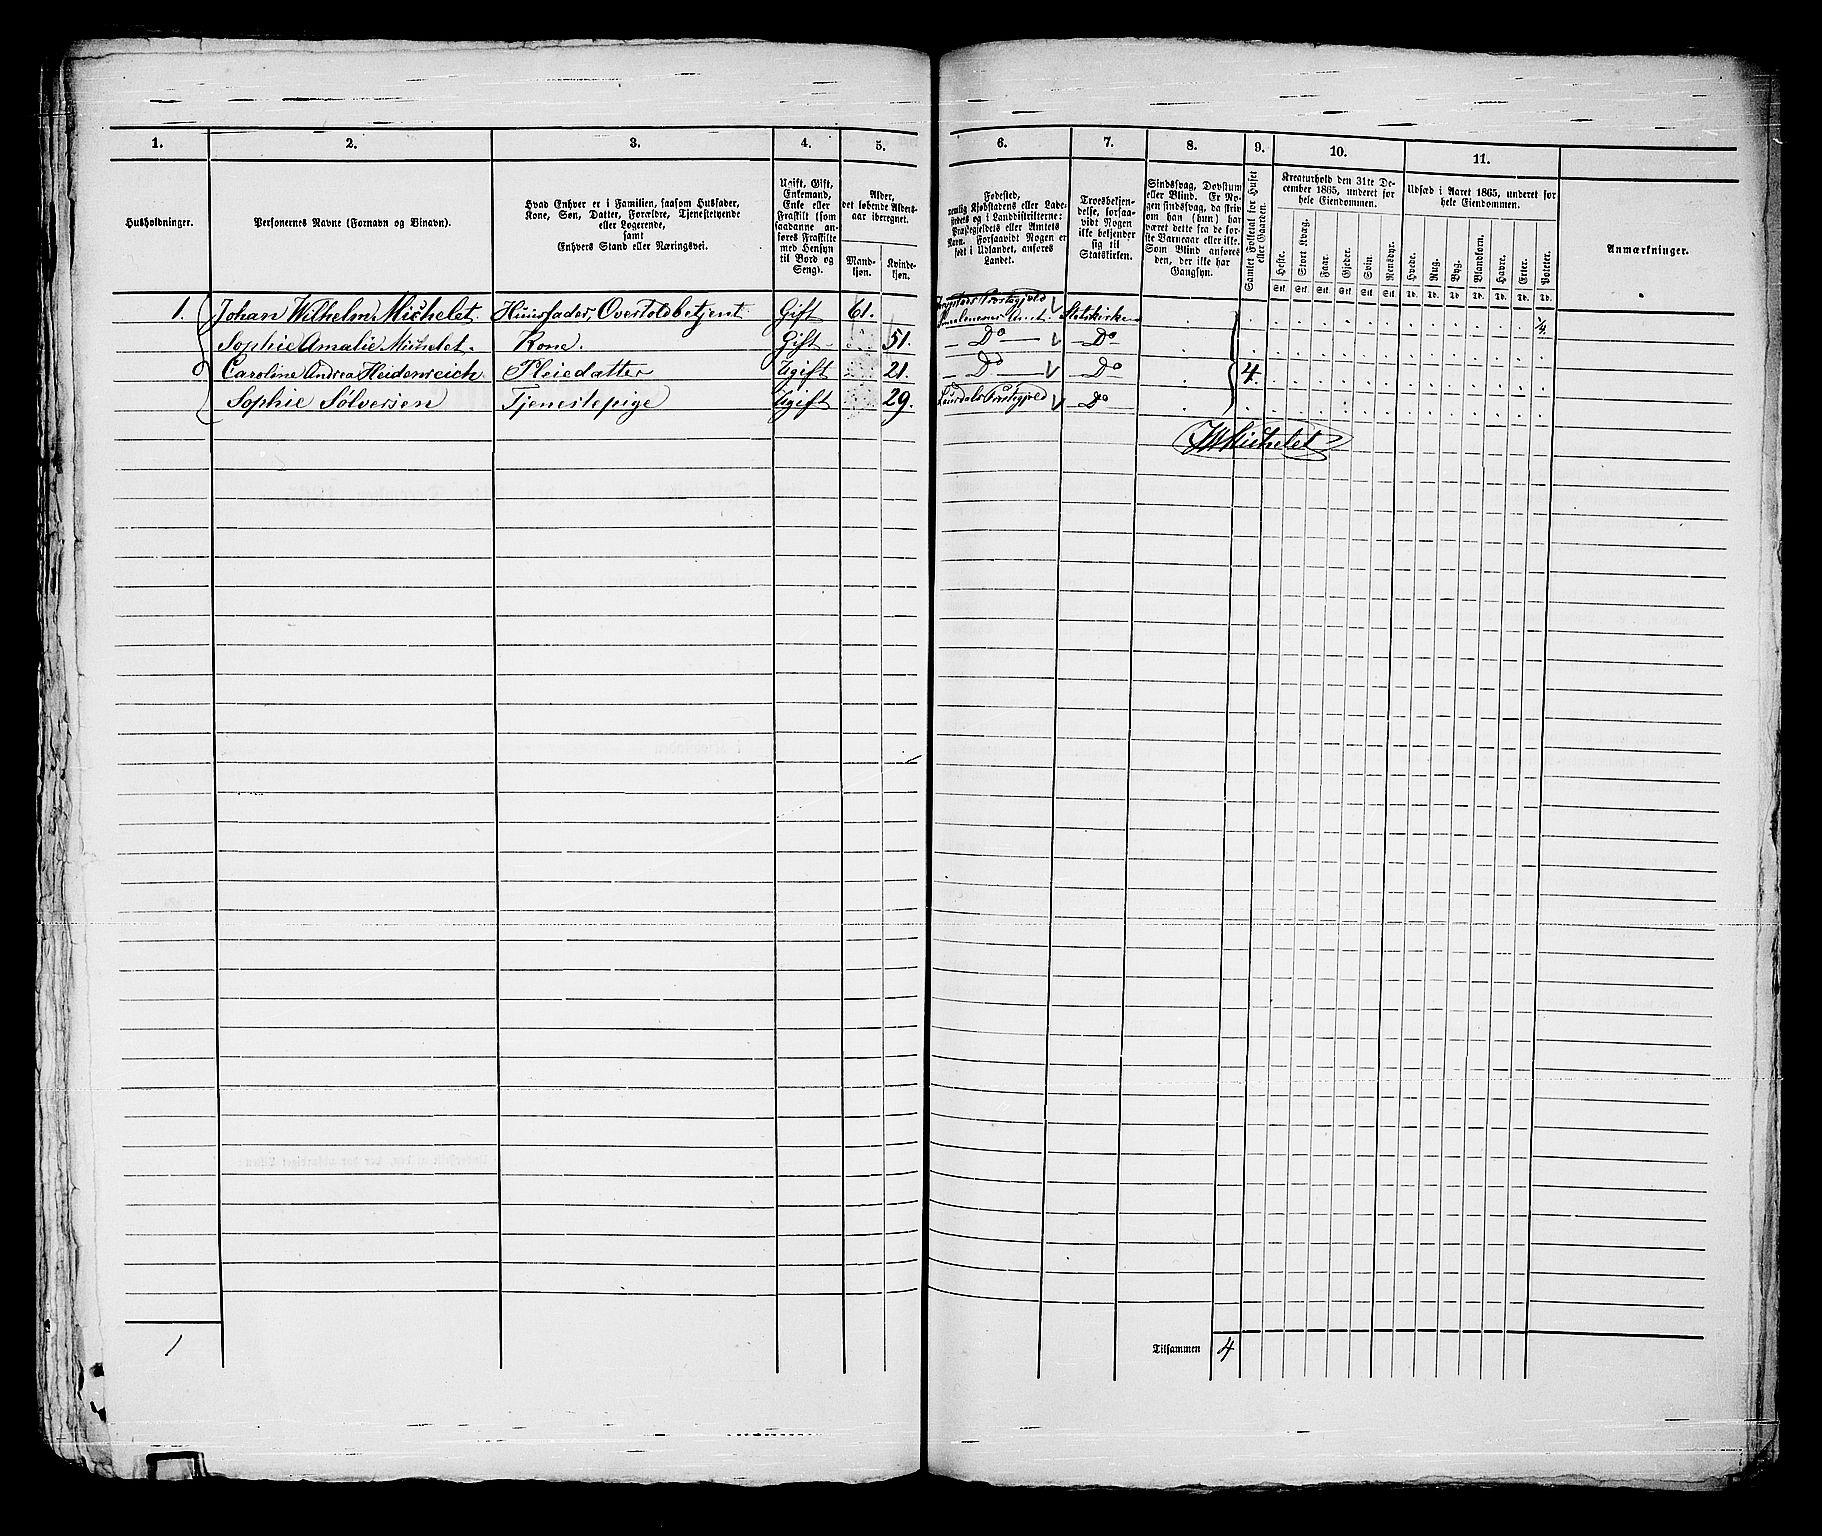 1. 2. 3. 4. 5. 6. 7. 8. 9. 10. 11.
Husholdninger.
Personernes Navne (Fornavn og Binavn).
Hvad Enhver er i Familien, saasom Husfader,
Kone, Søn, Datter, Forældre, Tjenestetyende
eller Logerende,
samt
Enhvers Stand eller Næringsvei.
Ugift, Gift,
Enkemand,
Enke eller
Fraskilt (som
saadanne an-
føres Fraskilte
med Hensyn
til Bord og
Seng).
Alder,
det løbende Alders-
aar iberegnet.
Mand-
kjøn.
Kvinde-
kjøn.
Fødested,
nemlig Kjøbstadens eller Lade-
stedets og i Landdistrikterne:
Præstegjeldets eller Amtets
Navn. Forsaavidt Nogen er
født i Udlandet, anføres
Landet.
Troesbekjen-
delse, forsaa-
vidt Nogen
ikke bekjender
sig til
Statskirken.
Sindssvag, Døvstum
eller Blind. Er No-
gen sindssvag, da skriv
om han (hun) har
været dette fra de før-
ste Barneaar eller ikke.
Som Blind anføres
den, der ikke har
Gangsyn.
Samlet Folketal for Huset
eller Gaarden.
Kreaturhold den 31te De-
cember 1865, underet for
hele Eiendommen.
Heste. Stort Kvæg. Faar. Gjeder. Svin. Rensdyr.
Stk. Stk. Stk. Stk. Stk. Stk.
Udsæd i Aaret 1865, underet for
hele Eiendommen.
Hvede. Rug. Byg. Blandkorn. Havre. Erter. Poteter.
Td. Td. Td. Td. Td. Td. Td.
Anmærkninger.
1. Johan Wilhelm Michelet. Huusfader, Overtoldbetjent Gift 61. Præstegjeld Smaalenenes Amt. Statskirken 1/4
Sophie Amalie Michelet. Kone. Gift 51. Do Do
Caroline Andrea Heidenreich Pleiedatter Ugift 21. Do Do 4
Sophie Sølversen Tjenestepige Ugift 29. Laurdals Præstegjeld Do
JWMichelet
1
Tilsammen 4